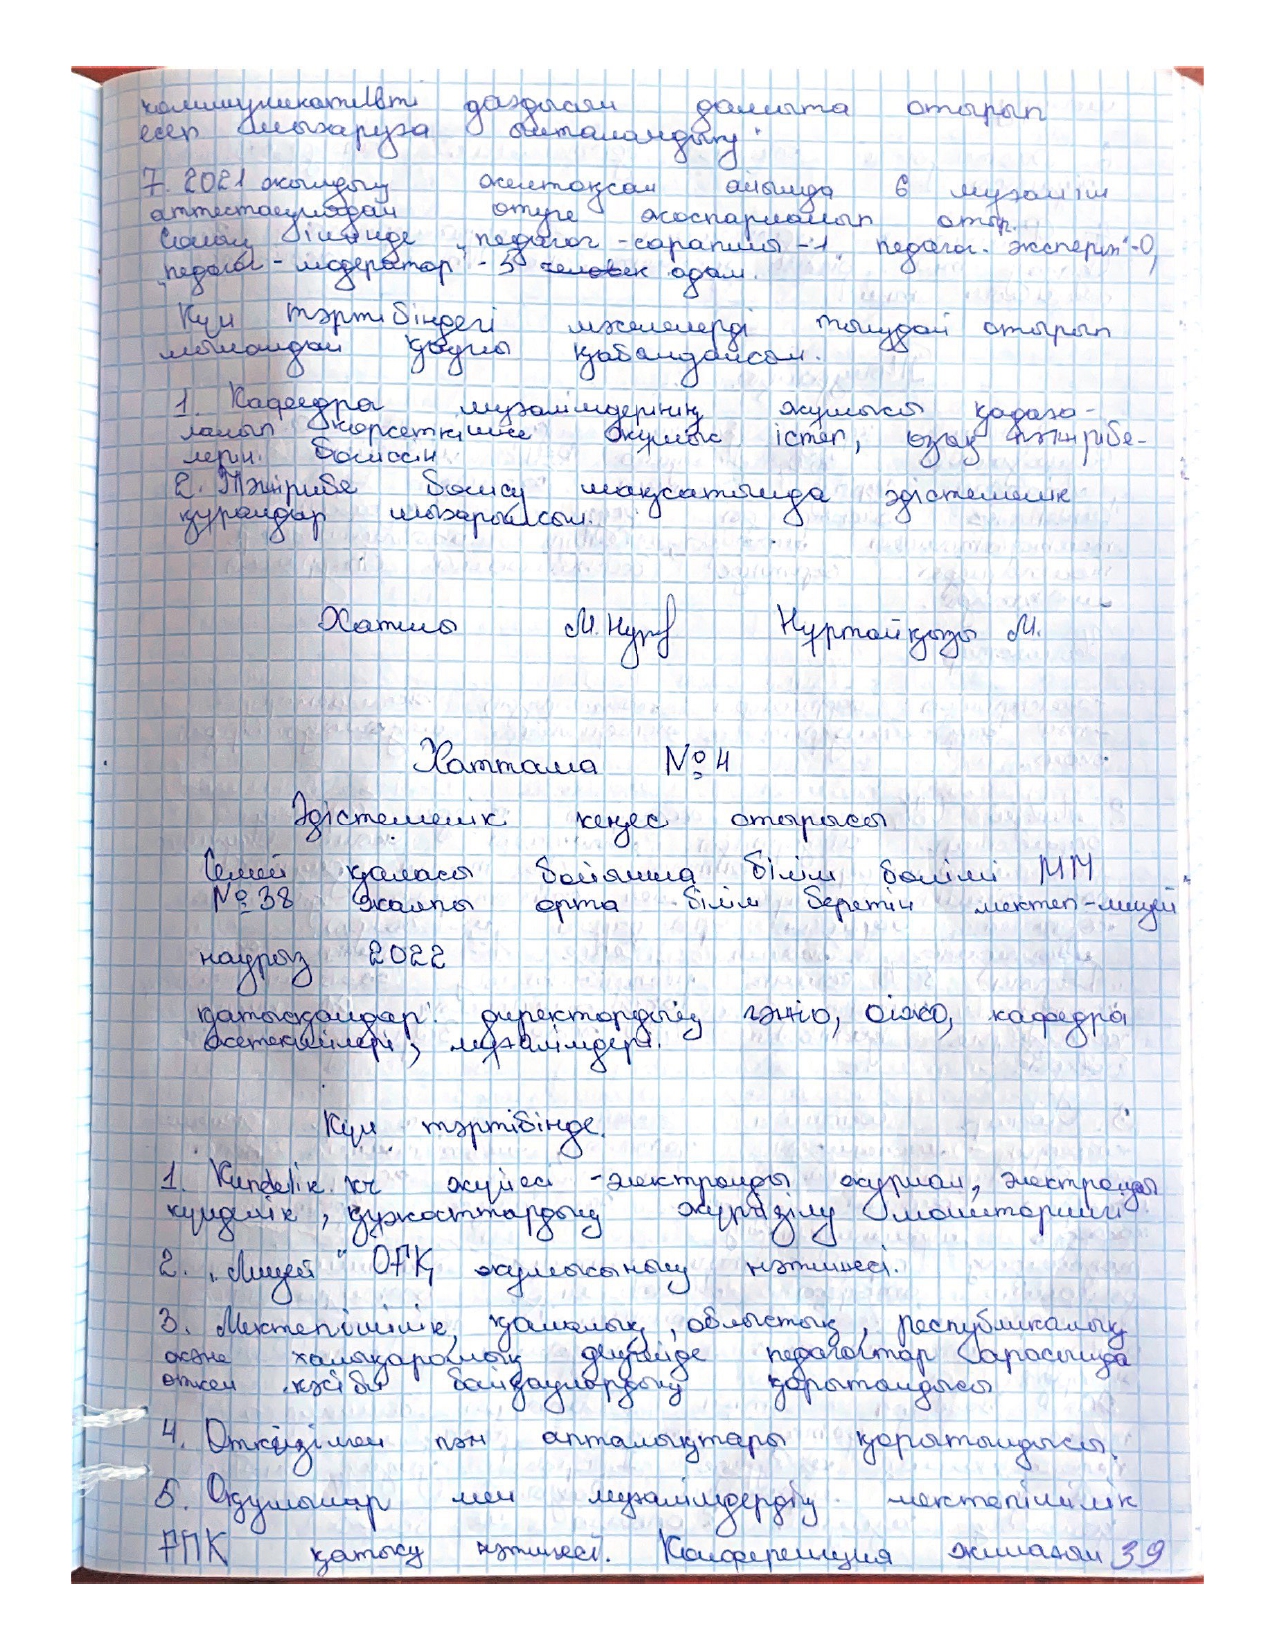 коммуникативті дағдысын дамыта отырып
есеп шығаруға ынталандыру
7. 2021 жылдың желтоқсан айында 6 мұғалім
аттестациядан өтуге жоспарланып отыр.
Соның ішінде "педагог-сарапшы - 1, педагог-эксперт"-0,
"педагог-модератор" - 5 человек адам.
Күн тәртібіндегі мәселелерді тыңдай отырып
мынандай қаулы қабылдансын.
1. Кафедра мұғалімдерінің жұмысы қадаға-
ланып көрсеткішке жұмыс істеп, озық тәжірибе-
лерін бөліссін.
2. Тәжірибе бөлісу мақсатында әдістемелік
құралдар шығарылсын.
Хатшы М.Нұр Нұртайқызы М.
Хаттама №4
Әдістемелік кеңес отырысы
Семей қаласы бойынша білім бөлімі ММ
№38 жалпы орта білім беретін мектеп-лицей
наурыз 2022
қатысқандар: директордың ғәжіо, оіжо, кафедра
жетекшілері, мұғалімдері.
Күн тәртібінде.
1. Kundelik.кz жүйесі - электронды журнал, электронды
күнделік, құжаттардың жүргізілу мониторингі
2. "Лицей" ОҒҚ жұмысының нәтижесі.
3. Мектепішілік, қалалық, облыстық, республикалық
және халықаралық деңгейде педагогтар арасында
өткен кәсіби байқаулардың қорытындысы
4. Өткізілген пән апталықтары қорытындысы.
5. Оқушылар мен мұғалімдердің мектепішілік
ҒПК қатысу нәтижесі. Конференция жинағын 39